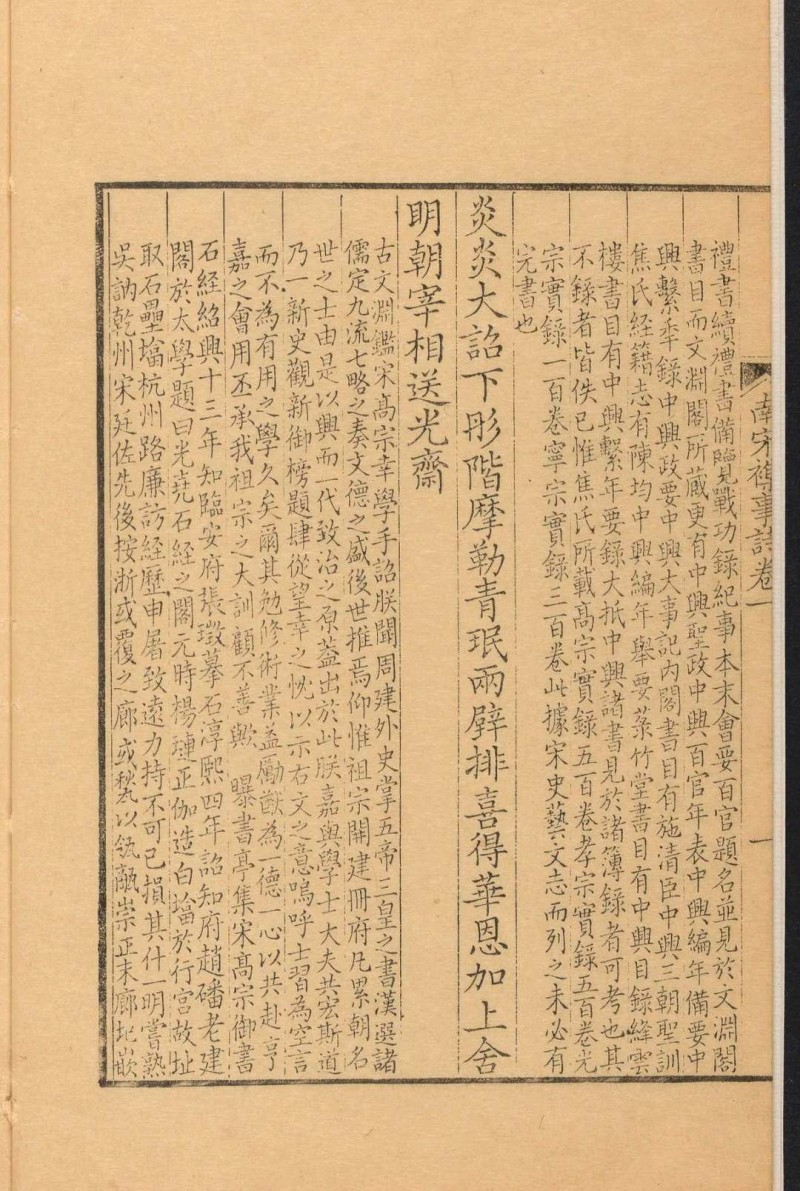 南宋襍事詩卷一
一
禮書續禮書備覽戰功錄紀事本末會要百官題名並見於文淵閣
書目而文淵閣所藏更有中興聖政中興百官年表中興編年備要中
興繫年錄中興政要中興大事記內閣書目有施清臣中興三朝聖訓
焦氏經籍志有陳均中興編年舉要菉竹堂書目有中興目錄絳雲
樓書目有中興繫年要錄大抵中興諸書見於諸簿錄者可考也其
不錄者皆佚已惟焦氏所載高宗實錄五百卷孝宗實錄五百卷光
宗實錄一百卷寧宗實錄三百卷此據宋史藝文志而列之未必有
完書也
炎炎大詔下彤階摩勒青珉兩壁排喜得華恩加上舍
明朝宰相送光齋
古文淵鑑宋高宗幸學手詔朕聞周建外史掌五帝三皇之書漢選諸
儒定九流七略之奏文德之盛後世推焉仰惟祖宗開建冊府凡累朝名
世之士由是以興而一代致治之原葢出於此朕嘉與學士大夫共宏斯道
乃一新史觀新御榜題肆從望幸之忱以示右文之意嗚呼士習為空言
而不為有用之學久矣爾其勉修術業益勵猷為一德一心以共赴亨
嘉之會用丕承我祖宗之大訓顧不善歟 曝書亭集宋高宗御書
石經紹興十三年知臨安府張澂摹石淳熙四年詔知府趙磻老建
閣於太學題曰光堯石經之閣元時楊璉正伽造白墖於行宮故址
取石壘墖杭州路廉訪經歷申屠致遠力持不可已損其什一明嘗熟
吳訥乾州宋廷佐先後按浙或覆之廊或甃以瓴甋崇正末廊圮嵌